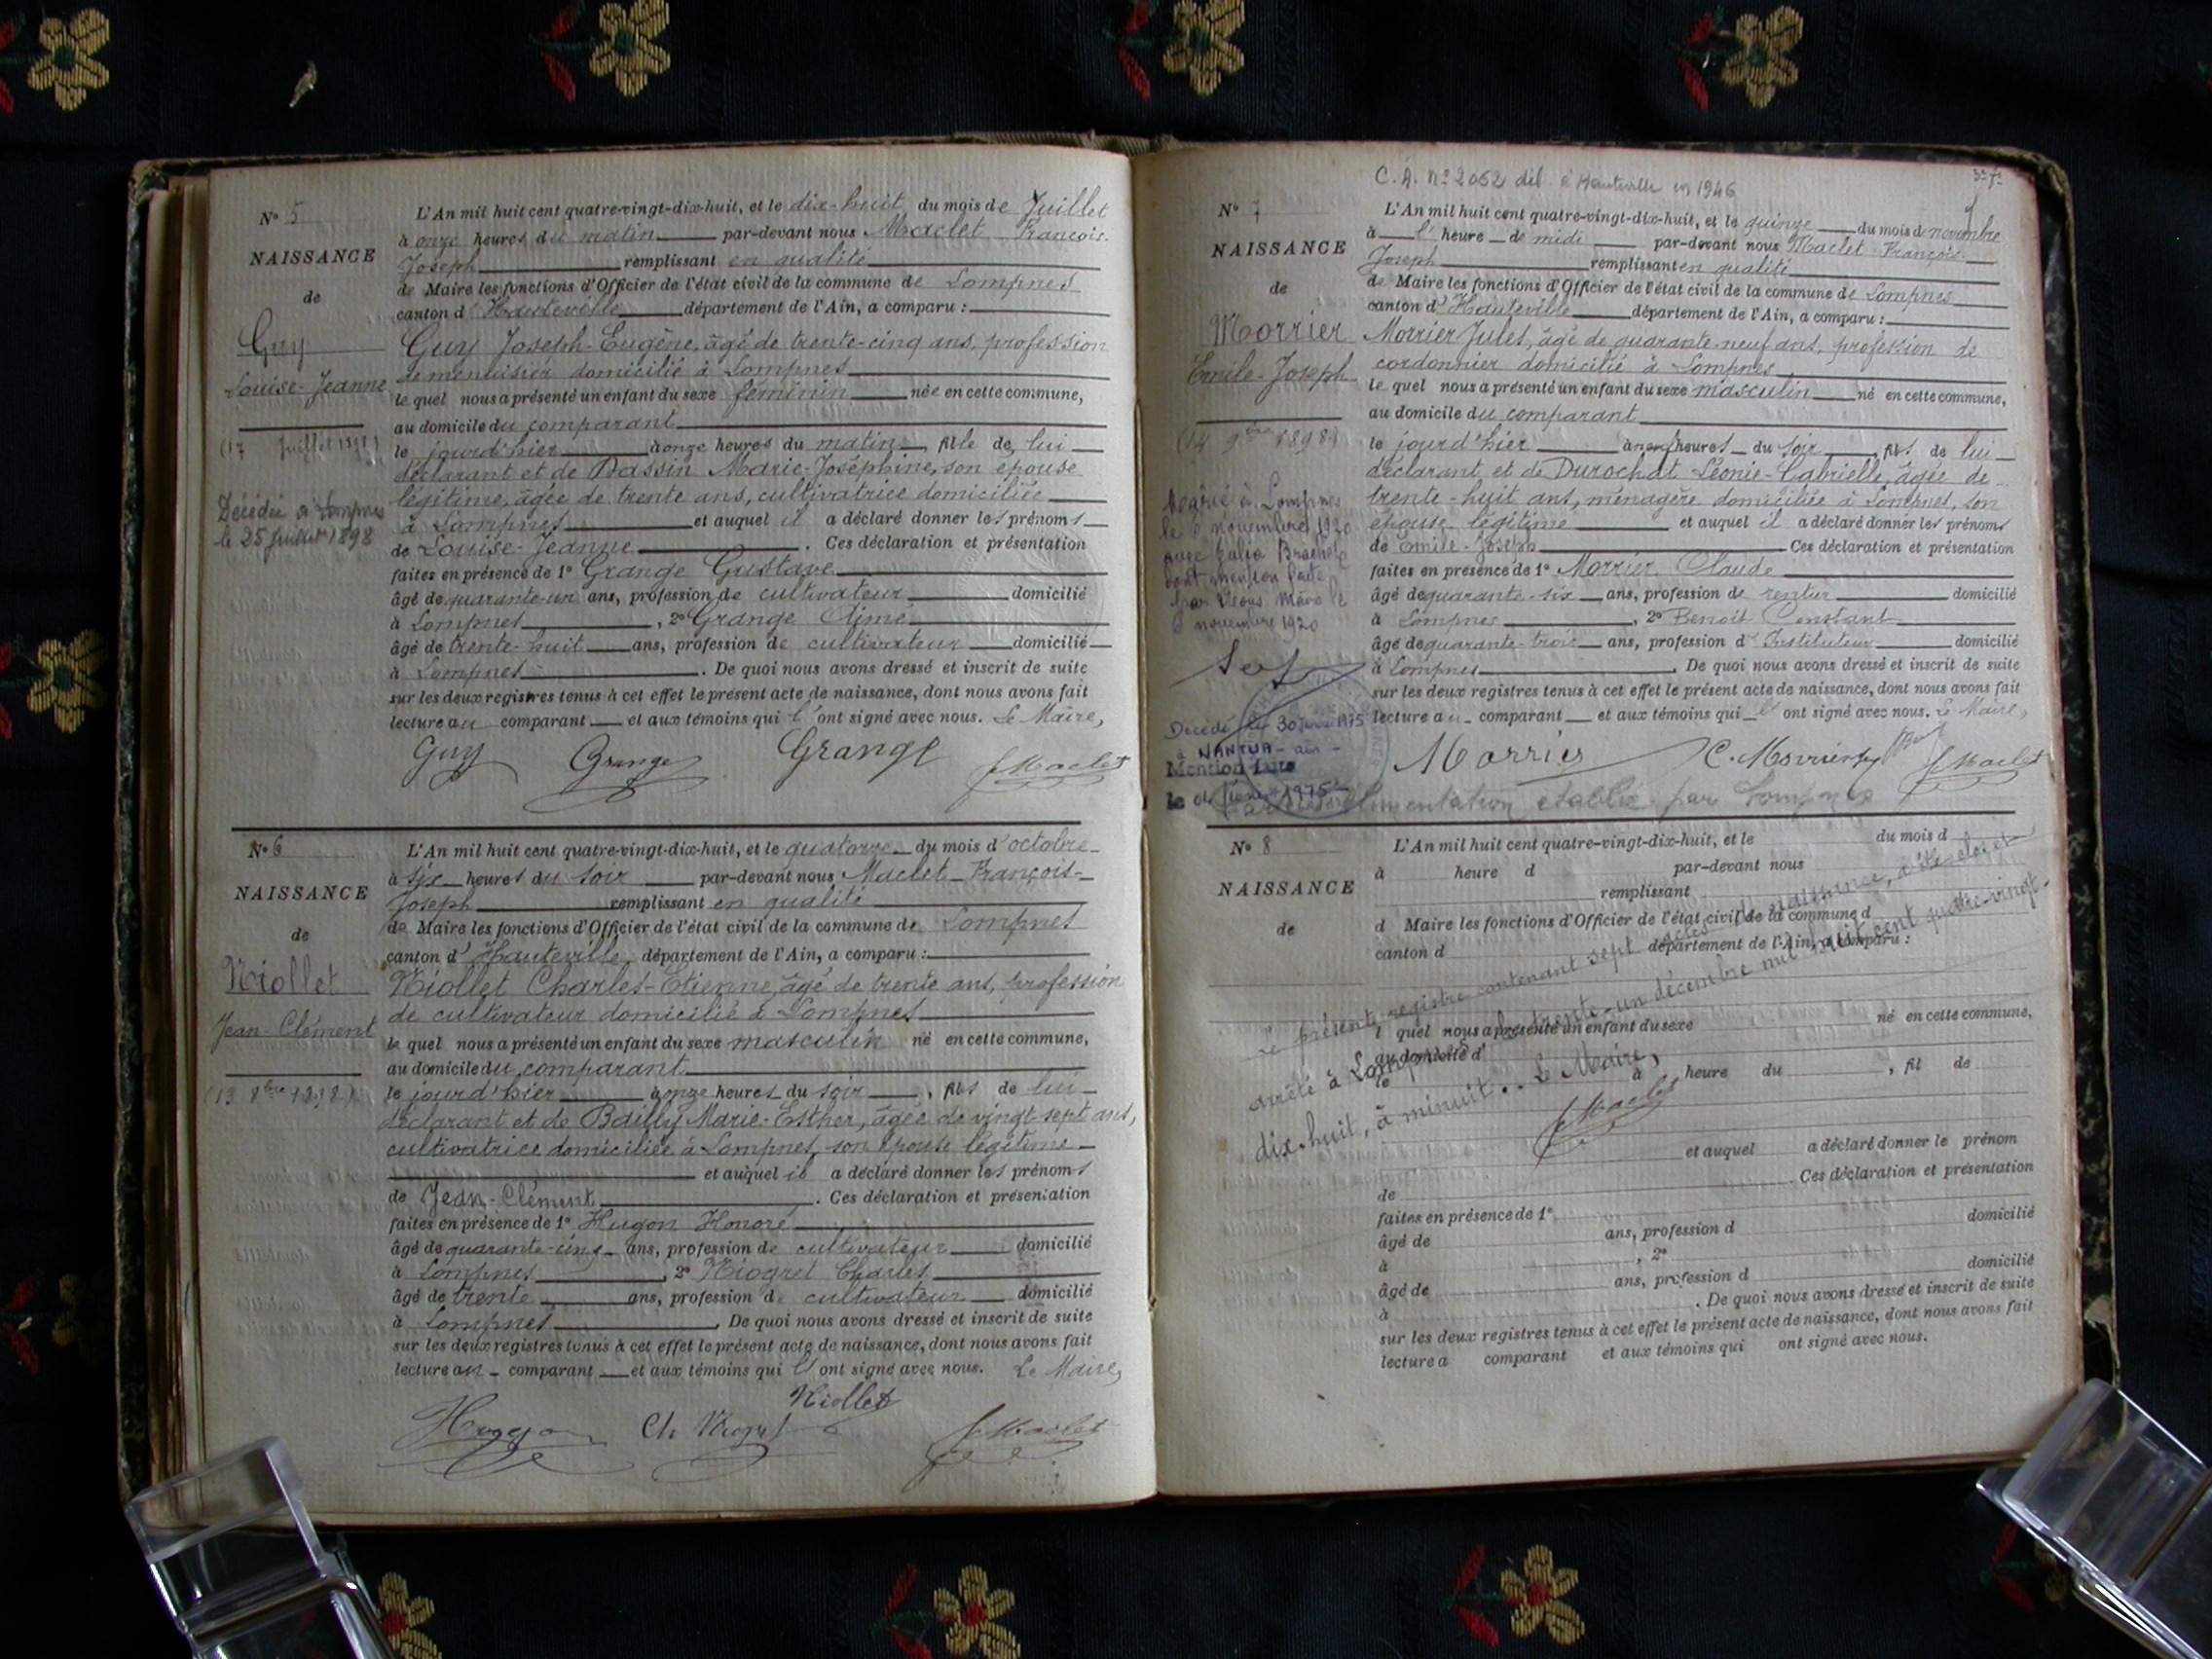 N° 5
NAISSANCE
de
Guy
Louise-Jeanne
(17 Juillet 1898)
Décédée à Lompnes
le 25 Juillet 1898
L'An mil huit cent quatre-vingt-dix-huit, et le dix-huit du mois de Juillet
à onze heures du matin par-devant nous Maclet François-
Joseph remplissant en qualité
de Maire les fonctions d'Officier de l'état civil de la commune de Lompnes
canton d'Hauteville département de l'Ain, a comparu :
Guy Joseph-Eugène, âgé de trente-cinq ans, profession
de menuisier domicilié à Lompnes
le quel nous a présenté un enfant du sexe féminin née en cette commune,
au domicile du comparant
le jourd'hier à onze heures du matin, fille de lui
déclarant et de Bassin Marie-Joséphine, son épouse
légitime, âgée de trente ans, cultivatrice domiciliée
à Lompnes et auquel il a déclaré donner les prénoms
de Louise-Jeanne. Ces déclaration et présentation
faites en présence de 1° Grange Gustave
âgé de quarante-un ans, profession de cultivateur domicilié
à Lompnes, 2° Grange Aimé
âgé de trente-huit ans, profession de cultivateur domicilié
à Lompnes. De quoi nous avons dressé et inscrit de suite
sur les deux registres tenus à cet effet le présent acte de naissance, dont nous avons fait
lecture au comparant et aux témoins qui l'ont signé avec nous. Le Maire,
Guy Grange Grange J Maclet
N° 6
NAISSANCE
de
Niollet
Jean-Clément
(13 8bre 1898)
L'An mil huit cent quatre-vingt-dix-huit, et le quatorze du mois d'octobre
à six heures du soir par-devant nous Maclet François-
Joseph remplissant en qualité
de Maire les fonctions d'Officier de l'état civil de la commune de Lompnes
canton d'Hauteville, département de l'Ain, a comparu :
Niollet Charles-Etienne, âgé de trente ans, profession
de cultivateur domicilié à Lompnes
le quel nous a présenté un enfant du sexe masculin né en cette commune,
au domicile du comparant
le jourd'hier à onze heures du soir, fils de lui
déclarant et de Bailly Marie-Esther, âgée de vingt-sept ans,
cultivatrice domiciliée à Lompnes, son épouse légitime
et auquel il a déclaré donner les prénoms
de Jean-Clément. Ces déclaration et présentation
faites en présence de 1° Hugon Honoré
âgé de quarante-cinq ans, profession de cultivateur domicilié
à Lompnes, 2° Niogret Charles
âgé de trente ans, profession de cultivateur domicilié
à Lompnes. De quoi nous avons dressé et inscrit de suite
sur les deux registres tenus à cet effet le présent acte de naissance, dont nous avons fait
lecture au comparant et aux témoins qui l'ont signé avec nous. Le Maire,
Niollet
Hugon Ch Niogret J Maclet
C. A. N° 2062 dél. à Hauteville en 1946
N° 7
NAISSANCE
de
Morrier
Emile-Joseph
(14 9bre 1898)
Marié à Lompnes
le 6 novembre 1920
avec Julia
dont mention faite
par Nous Maire le
6 novembre 1920
Décédé le 30 1975
à NANTUA - ain -
Mention faite
le 1975
L'An mil huit cent quatre-vingt-dix-huit, et le quinze du mois de novembre
à l'heure de midi par-devant nous Maclet François-
Joseph remplissant en qualité
de Maire les fonctions d'Officier de l'état civil de la commune de Lompnes
canton d'Hauteville département de l'Ain, a comparu :
Morrier Jules, âgé de quarante-neuf ans, profession de
cordonnier domicilié à Lompnes
le quel nous a présenté un enfant du sexe masculin né en cette commune,
au domicile du comparant
le jourd'hier à heures du soir, fils de lui
déclarant et de Durochat Léonie-Gabrielle, âgée de
trente-huit ans, ménagère domiciliée à Lompnes, son
épouse légitime et auquel il a déclaré donner les prénoms
de Emile-Joseph. Ces déclaration et présentation
faites en présence de 1° Morrier Claude
âgé de quarante-six ans, profession de rentier domicilié
à Lompnes, 2° Benoit Constant
âgé de quarante-trois ans, profession d'Instituteur domicilié
à Lompnes. De quoi nous avons dressé et inscrit de suite
sur les deux registres tenus à cet effet le présent acte de naissance, dont nous avons fait
lecture au comparant et aux témoins qui l'ont signé avec nous. Le Maire,
Morrier C. Morrier J Maclet
alimentation établie par Lompnes
N° 8
NAISSANCE
de
L'An mil huit cent quatre-vingt-dix-huit, et le du mois d
à heure d par-devant nous
remplissant
d Maire les fonctions d'Officier de l'état civil de la commune d
canton d département de l'Ain, a comparu :
l quel nous a présenté un enfant du sexe né en cette commune,
au domicile d
le à heure du , fil de
et auquel a déclaré donner le prénom
de . Ces déclaration et présentation
faites en présence de 1°
âgé de ans, profession d domicilié
à , 2°
âgé de ans, profession d domicilié
à . De quoi nous avons dressé et inscrit de suite
sur les deux registres tenus à cet effet le présent acte de naissance, dont nous avons fait
lecture a comparant et aux témoins qui ont signé avec nous.
Le présent registre contenant sept actes de naissance, a été clos et
arrêté à Lompnes le trente-un décembre mil huit cent quatre-vingt-
dix-huit, à minuit. Le Maire,
J Maclet